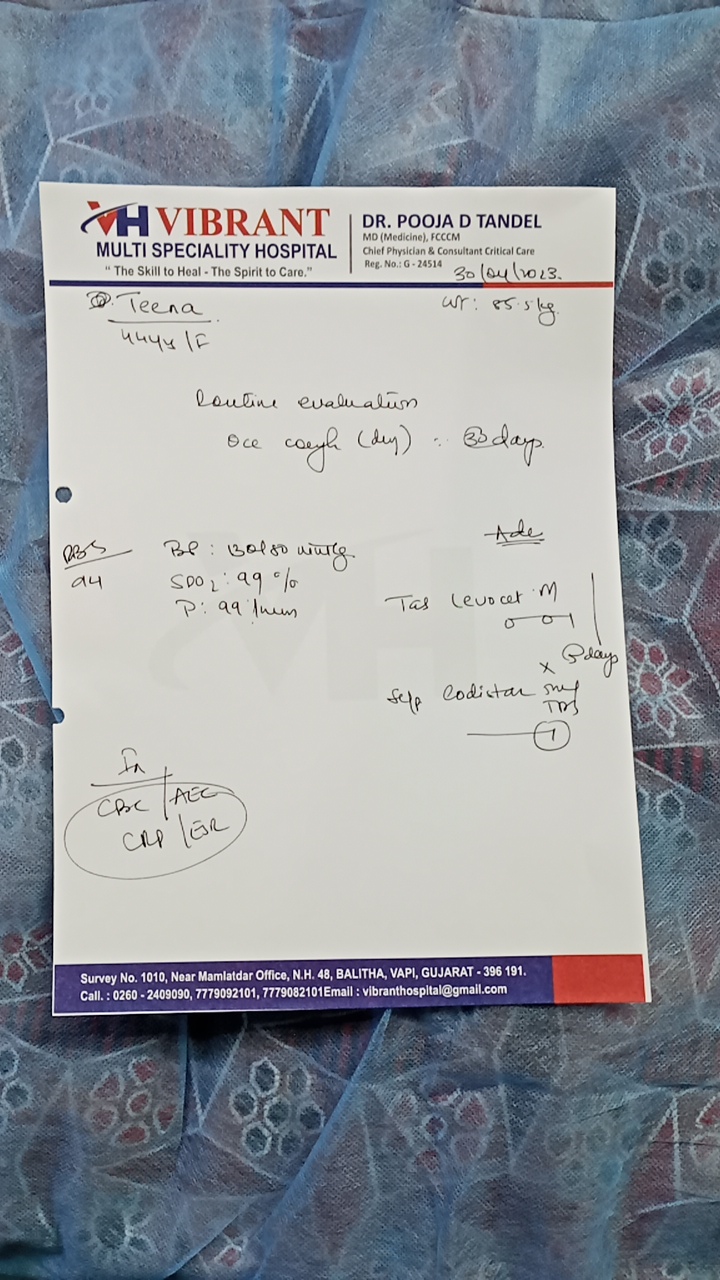 VH VIBRANT
MULTI SPECIALITY HOSPITAL
" The Skill to Heal - The Spirit to Care."
DR. POOJA D TANDEL
MD (Medicine), FCCCM
Chief Physician & Consultant Critical Care
Reg. No.: G - 24514
30/04/2023.
Teena
44yr/F
WT: 85.5kg.
Routine evaluation
Occ cough (dry)
days
RBS
94
BP: 130/80 mmHg
SPO2: 99 %
P: 99 /min
Adv
Tab Levocet M
x days
Syp Codistar 5ml
TDS
1
In
CBC / AEC
CRP / ESR
Survey No. 1010, Near Mamlatdar Office, N.H. 48, BALITHA, VAPI, GUJARAT - 396 191.
Call. : 0260 - 2409090, 7779092101, 7779082101Email : vibranthospital@gmail.com